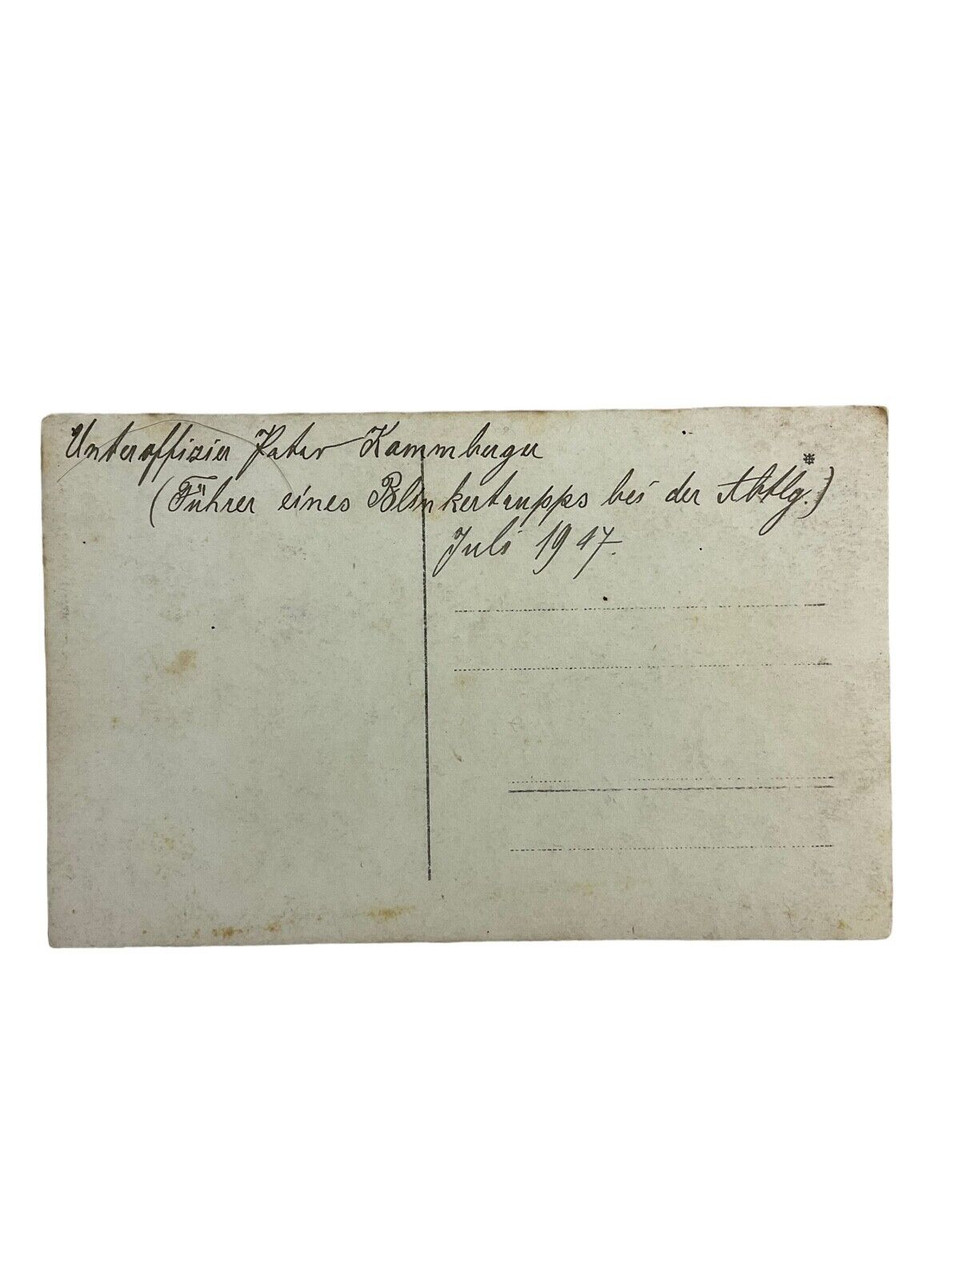 Unteroffizier Peter Kammberger
(Führer eines Blinkertrupps bei der Abtlg.)
Juli 1917.